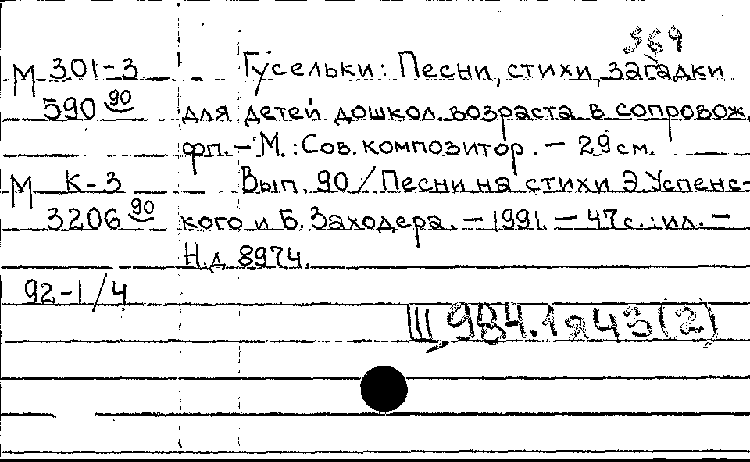 569
М 301-3 Гусельки: Песни, стихи, загадки
590 90 для детей дошкол. возраста в сопровож.
фп. – М.: Сов. композитор. – 29 см.
М К-3 Вып. 90 / Песни на стихи Э. Успенс-
3206 90 кого и Б. Заходера. – 1991. – 47 с.: ил. –
Н.д 8974.
92-1/4
III 984.1я43(2)